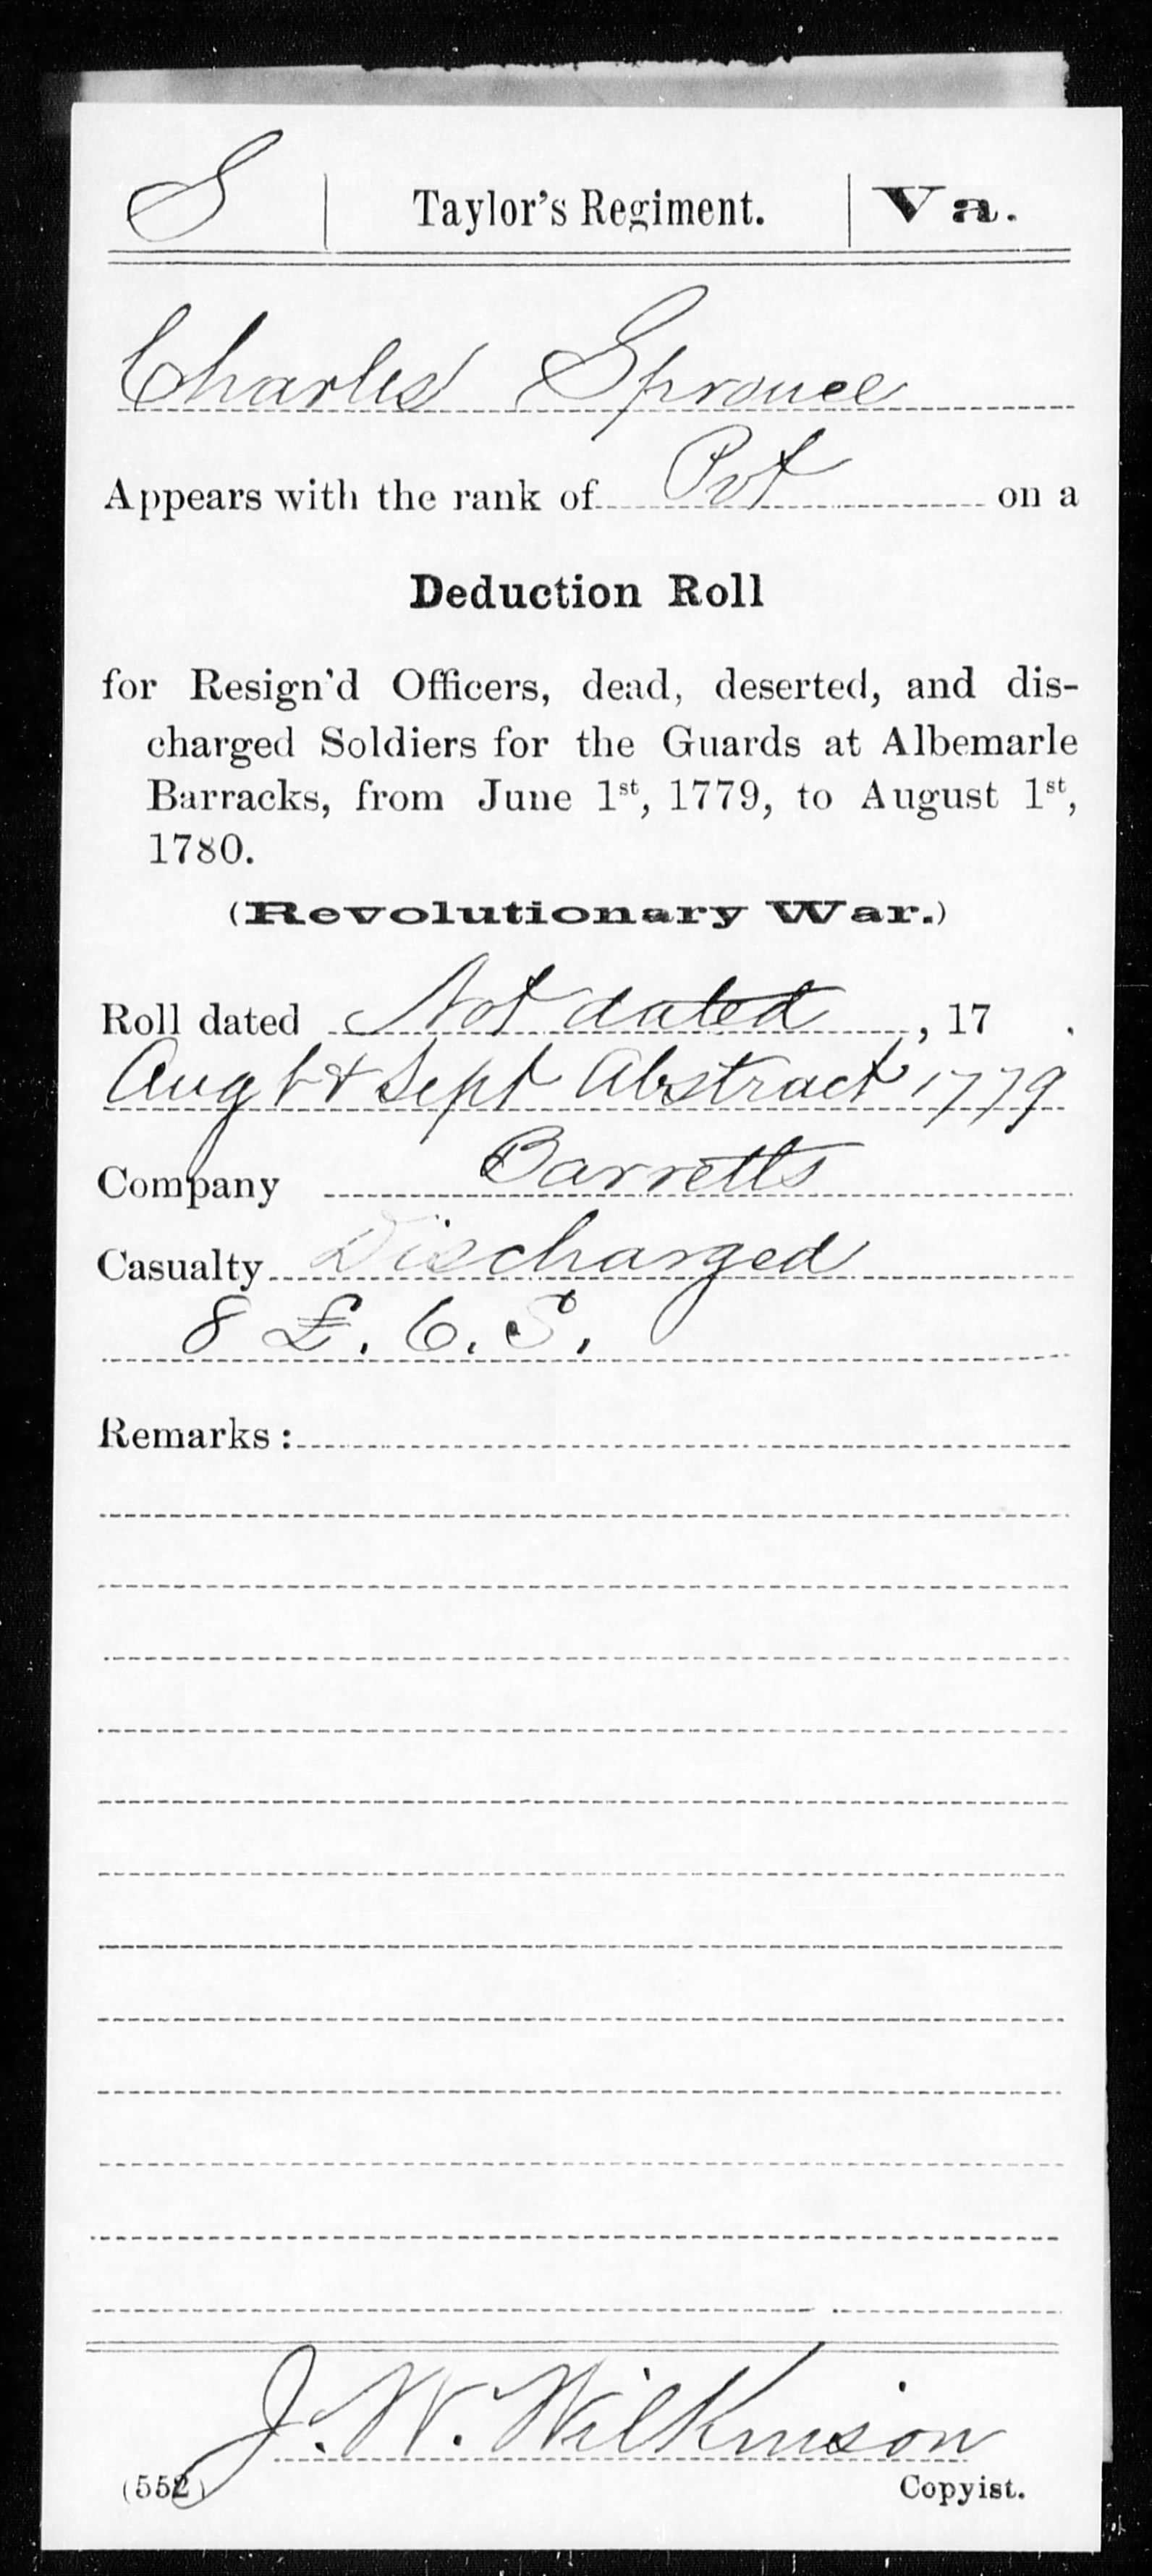 S | Taylor's Regiment. | Va.
Charles Sprouce
Appears with the rank of Pvt on a
Deduction Roll
for Resign'd Officers, dead, deserted, and dis-
charged Soldiers for the Guards at Albemarle
Barracks, from June 1st, 1779, to August 1st,
1780.
(Revolutionary War.)
Roll dated Not dated, 17 .
Augt & Sept Abstract 1779
Company Barretts
Casualty Discharged
8 £. 6. S.
Remarks:
J. W. Wilkinson
(552) Copyist.